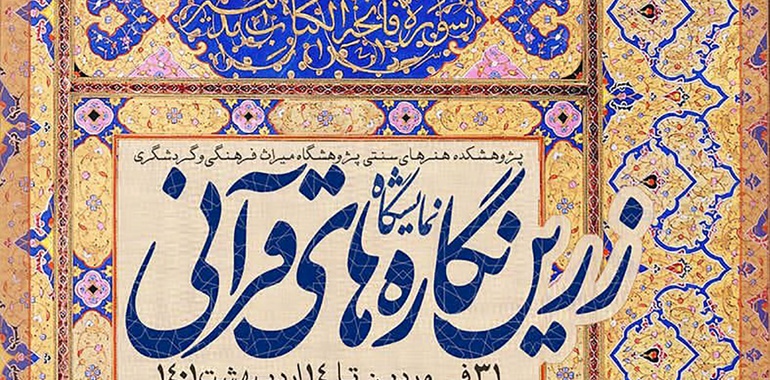 سورة فاتحة الكتاب
پژوهشکده هنرهای سنتی پژوهشگاه میراث فرهنگی و گردشگری
نمایشگاه
زرین نگاره های قرآنی
۳۱ فروردین تا ۱۴ اردیبهشت ۱۴۰۱